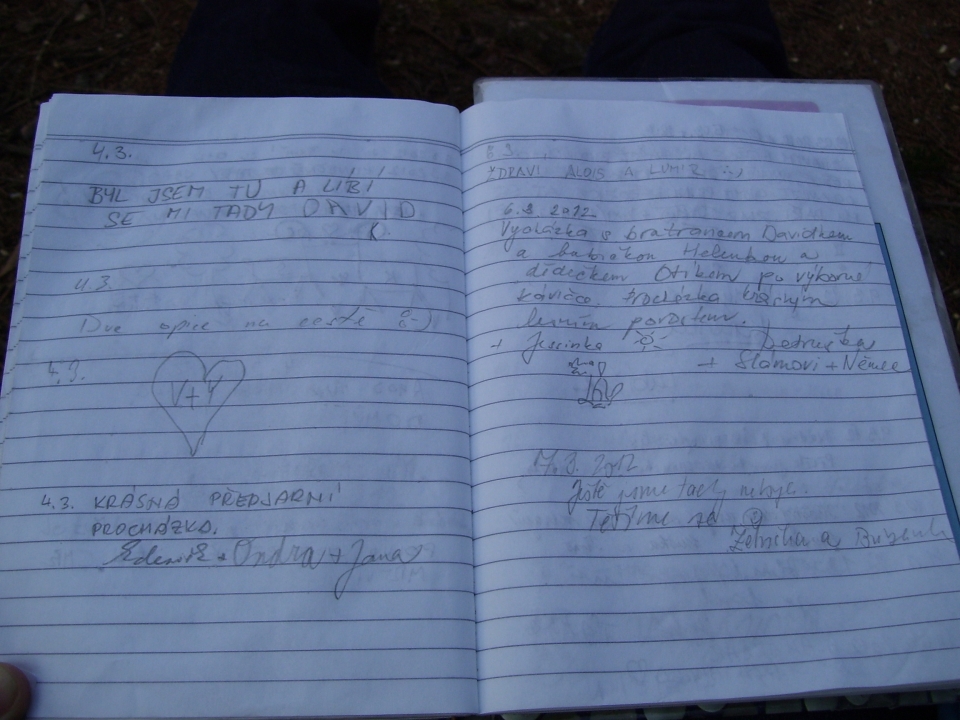 4.3.
BYL JSEM TU A LÍBÍ
SE MI TADY DAVID
K.
4.3
Dve opice na cestě :-)
4.3.
V+Y
4.3. KRÁSNÁ PŘEDJARNÍ
PROCHÁZKA.
Zdeněk + Ondra + Jana
ZDRAVÍ ALOIS A LUMÍR :-)
6.3. 2012
Vycházka s bratrancem Davídkem
a babičkou Helenkou a
dědečkem Otíkem po výborné
kávičce procházka krásným
lesním porostem.
+ Jessinka Petruška
+ Slámovi + Němec
17.3. 2012
Ještě jsme tady nebyli.
Těšíme se
a